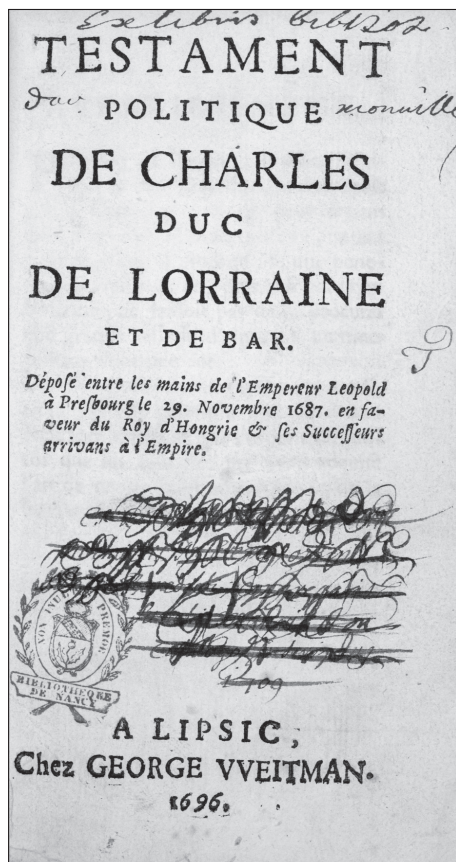 Ex libris
TESTAMENT
POLITIQUE
DE CHARLES
DUC
DE LORRAINE
ET DE BAR.
Déposé entre les mains de l'Empereur Leopold
à Presbourg le 29. Novembre 1687. en fa-
veur du Roy d'Hongrie & ses Successeurs
arrivans à l'Empire.
NON INULTUS PREMOR
BIBLIOTHEQUE
DE NANCY
A LIPSIC,
Chez GEORGE VVEITMAN.
1696.